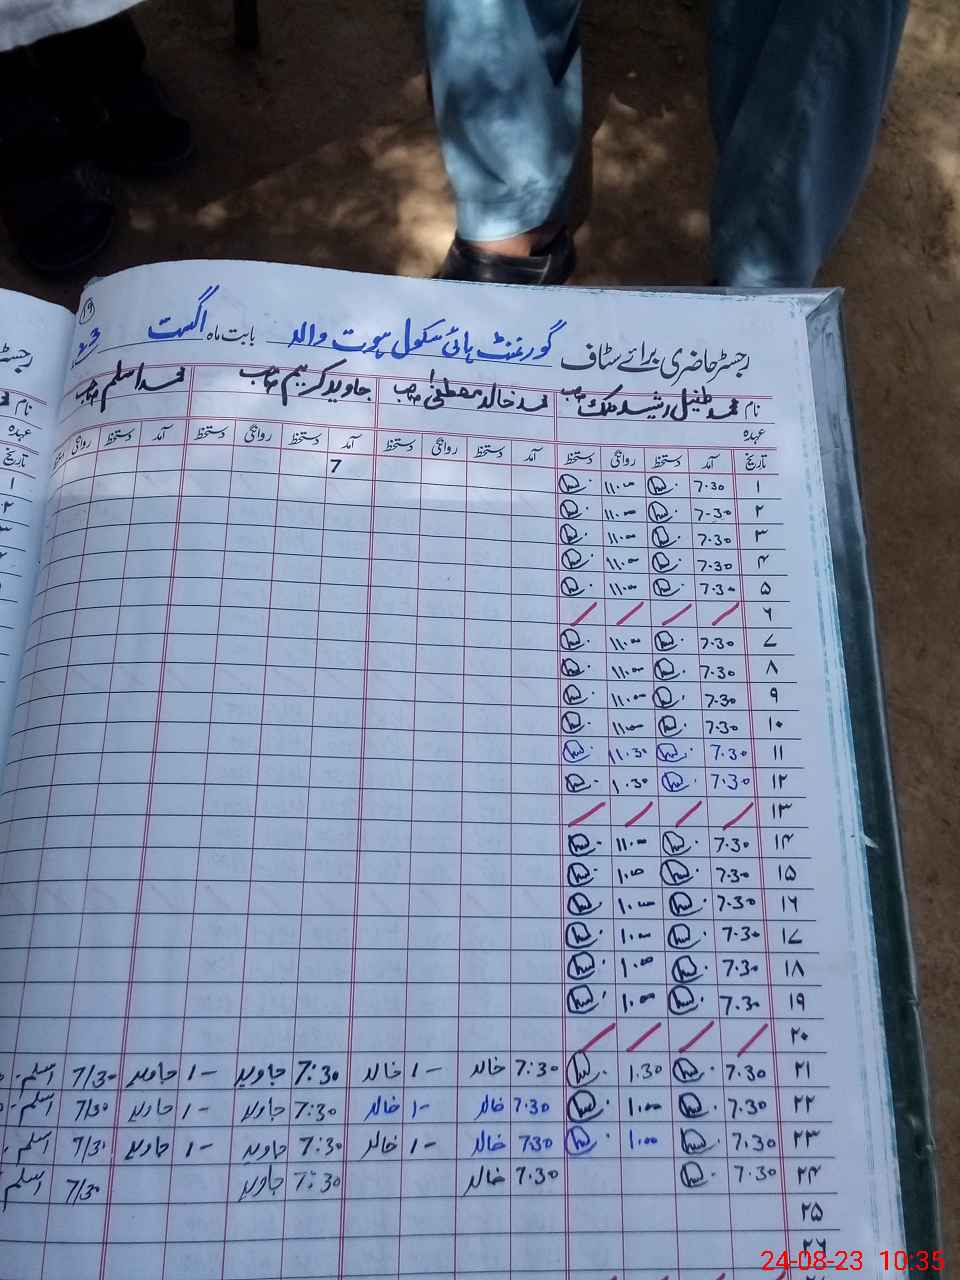 ۱۹
رجسٹر حاضری برائے سٹاف گورنمنٹ ہائی سکول ہوت والہ بابت ماہ اگست 23
نام محمد طفیل رشید ملک صاحب محمد خالد مصطفیٰ صاحب جاوید کریم صاحب محمد اسلم صاحب
عہدہ
تاریخ آمد دستخط روانگی دستخط آمد دستخط روانگی دستخط آمد دستخط روانگی دستخط آمد دستخط روانگی
۱ 7.30 11.00 7
۲ 7.30 11.00
۳ 7.30 11.00
۴ 7.30 11.00
۵ 7.30 11.00
۶
۷ 7.30 11.00
۸ 7.30 11.00
۹ 7.30 11.00
۱۰ 7.30 11.00
۱۱ 7.30 11.30
۱۲ 7.30 1.30
۱۳
۱۴ 7.30 11.00
۱۵ 7.30 1.00
۱۶ 7.30 1.00
۱۷ 7.30 1.00
۱۸ 7.30 1.00
۱۹ 7.30 1.00
۲۰
۲۱ 7.30 1.30 7:30 خالد 1- خالد 7:30 جاوید 1- جاوید 7/30 اسلم
۲۲ 7.30 1.00 7.30 خالد 1- خالد 7:30 جاوید 1- جاوید 7/30 اسلم
۲۳ 7.30 1.00 730 خالد 1- خالد 7:30 جاوید 1- جاوید 7/30 اسلم
۲۴ 7.30 7.30 خالد 7:30 جاوید 7/30 اسلم
۲۵
۲۶
24-08-23 10:35